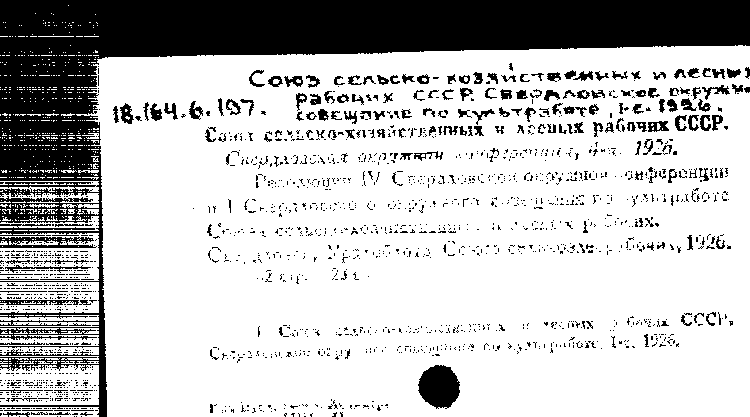 Союз сельско-хозяйственных и лесных
18.164.6.197. рабочих СССР. Свердловское окружн
совещание по культработе, I-е. 1926.
Союз сельско-хозяйственных и лесных рабочих СССР.
Свердловская окружная конференция, 4-я. 1926.
Резолюции IV Свердловской окружной конференции
и I Свердловского окружного совещания по культработе
Союза сельско-хозяйственных и лесных рабочих.
Свердловск, Уралоблотд. Союза сельхозлесрабочих, 1926.
I. Союз сельско-хозяйственных и лесных рабочих СССР.
Свердловское окружное совещание по культработе, I-е, 1926.